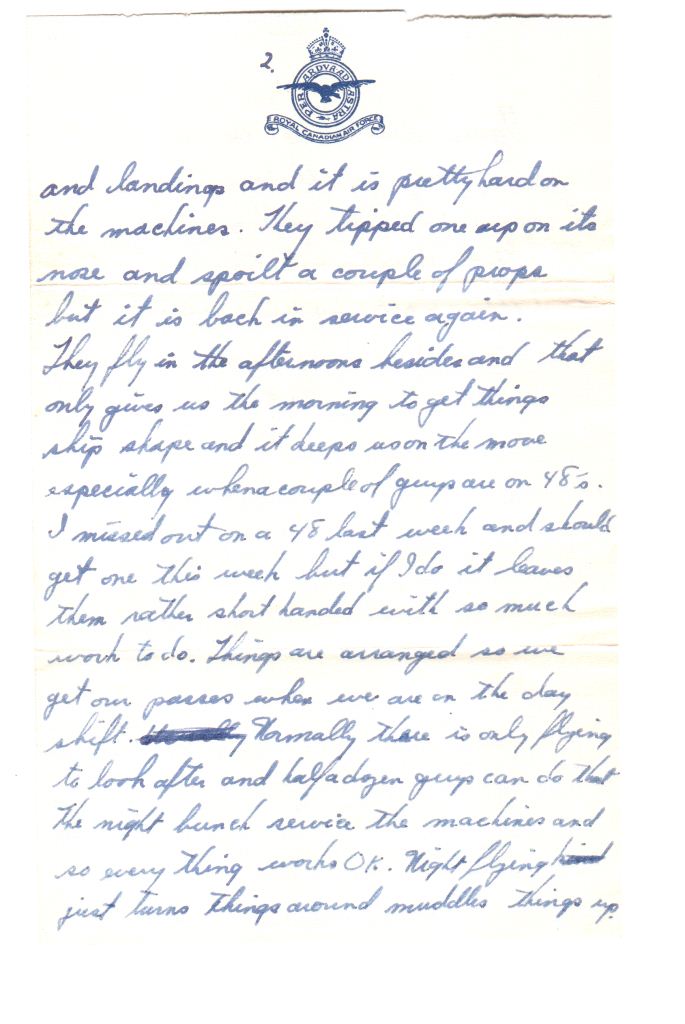 2.
PER ARDVA AD ASTRA
ROYAL CANADIAN AIR FORCE
and landings and it is pretty hard on
the machines. They tipped one up on its
nose and spoilt a couple of props
but it is back in service again.
They fly in the afternoons besides and that
only gives us the morning to get things
ship shape and it keeps us on the move
especially when a couple of guys are on 48's.
I missed out on a 48 last week and should
get one this week but if I do it leaves
them rather short handed with so much
work to do. Things are arranged so we
get our passes when we are on the day
shift. Normally there is only flying
to look after and half a dozen guys can do that
the night bunch service the machines and
so every thing works OK. Night flying
just turns things around muddles things up.